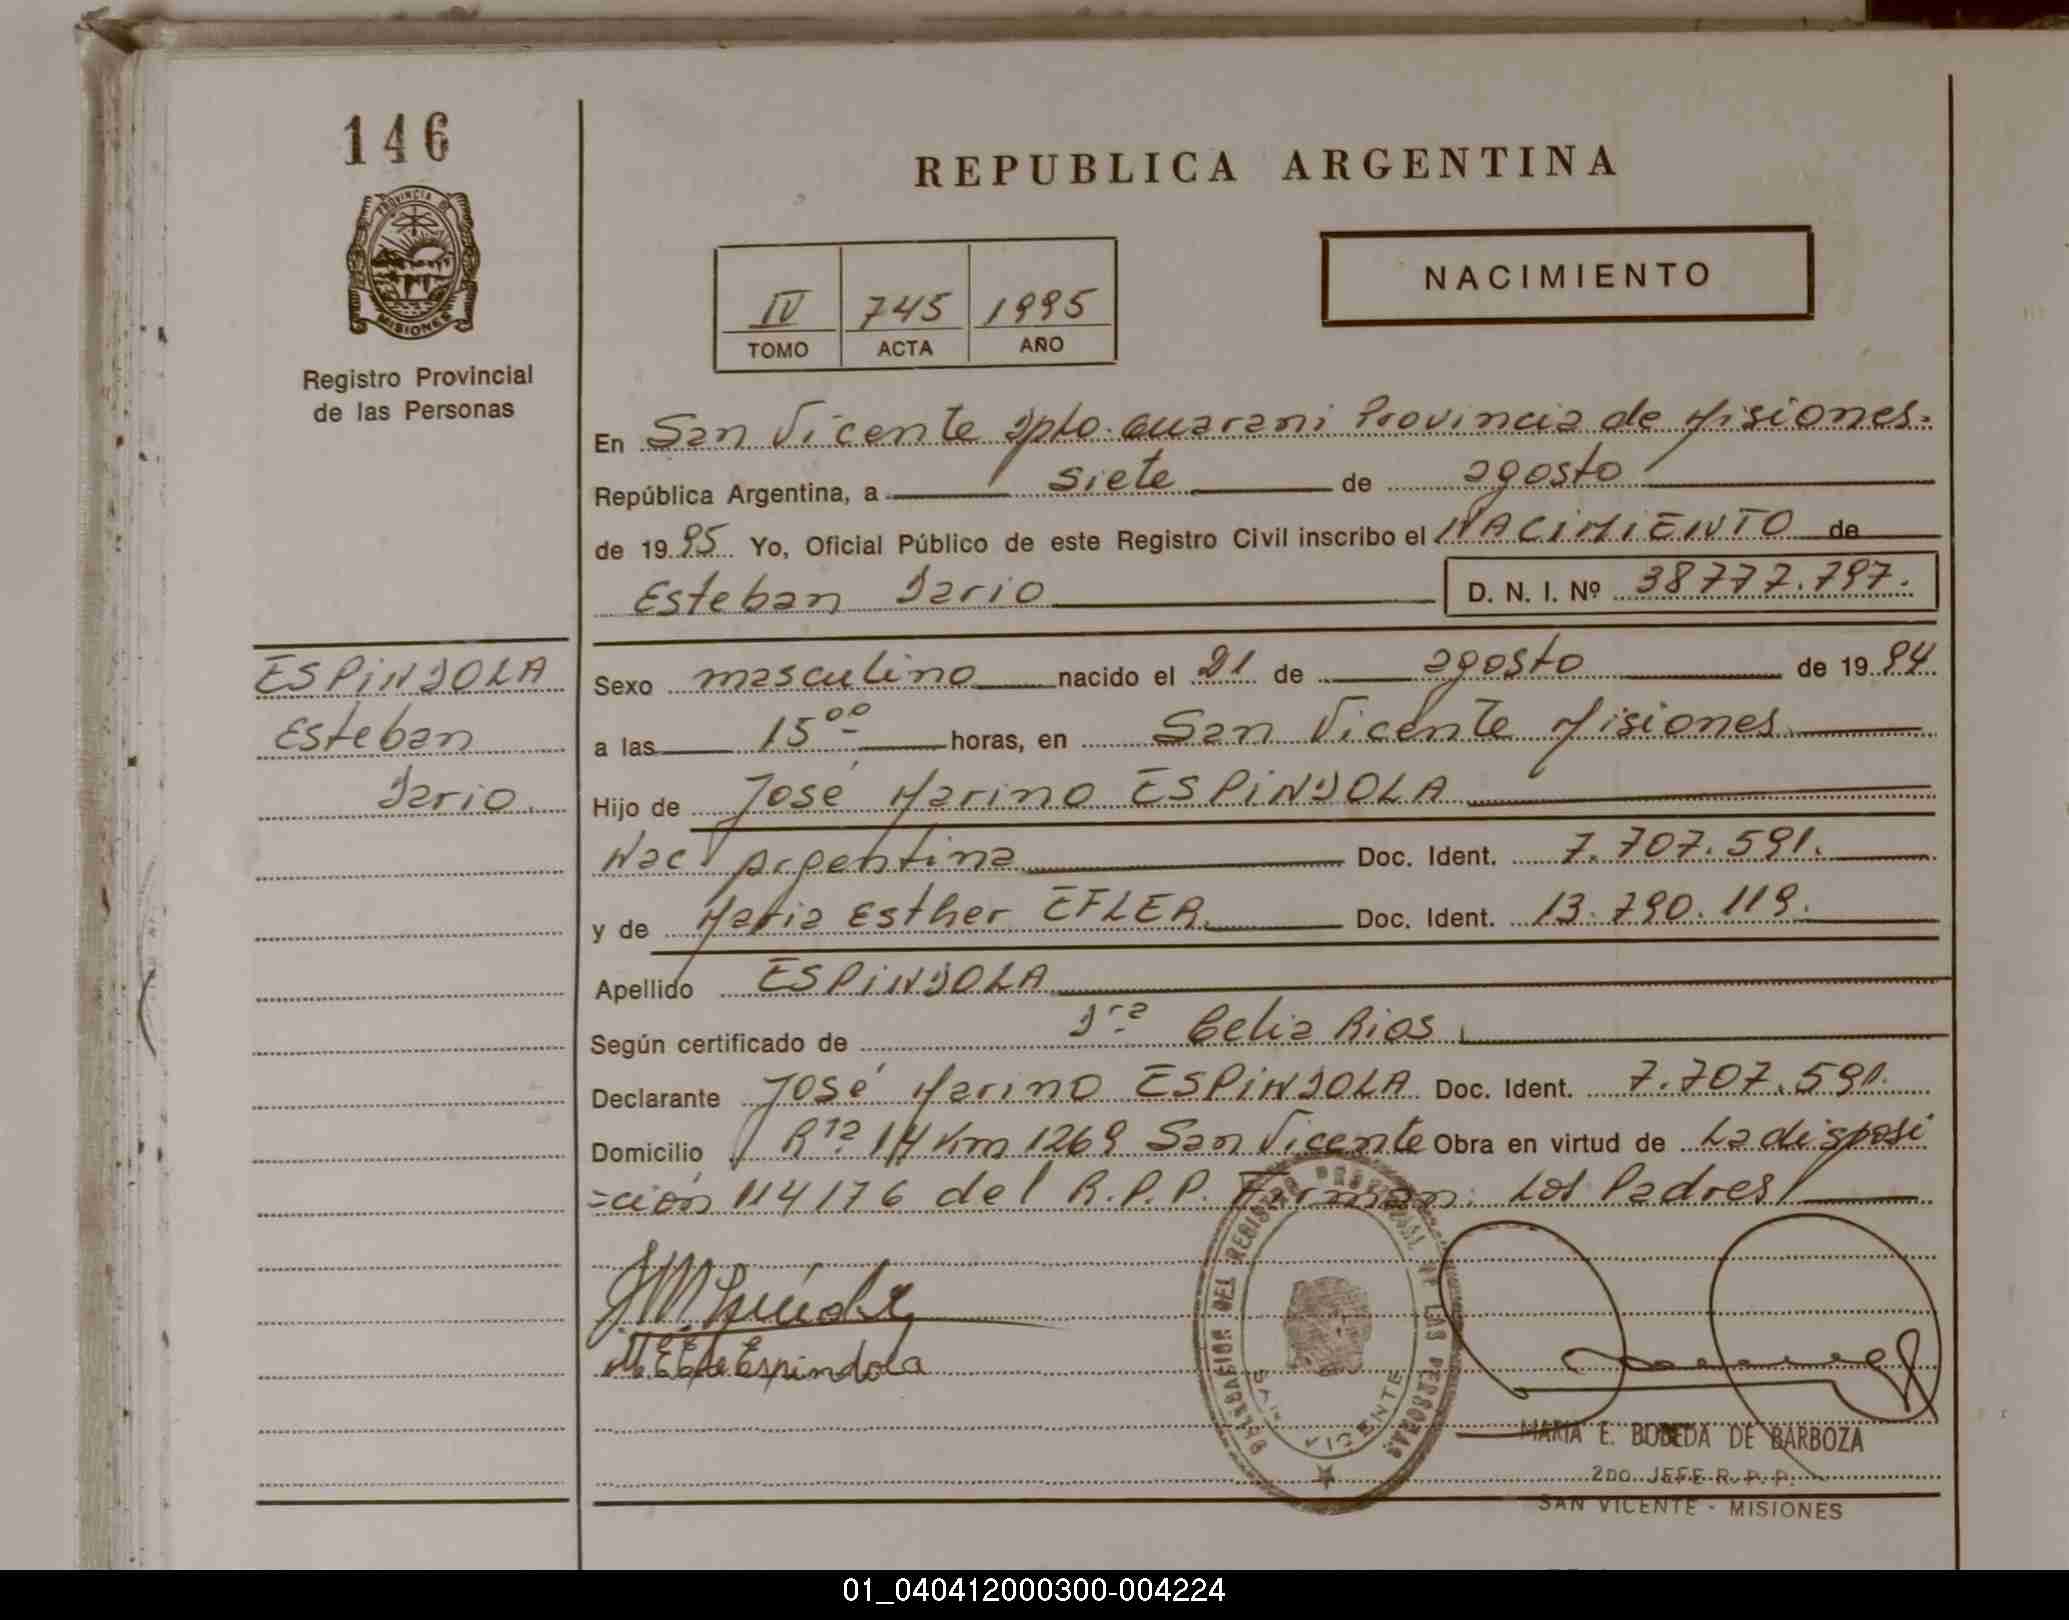 146
PROVINCIA DE
MISIONES
Registro Provincial
de las Personas
REPUBLICA ARGENTINA
NACIMIENTO
IV 745 1995
TOMO ACTA AÑO
En San Vicente Dpto. Guarani Provincia de Misiones.
República Argentina, a siete de agosto
de 19 95 Yo, Oficial Público de este Registro Civil inscribo el NACIMIENTO de
Esteban Dario D. N. I. Nº 38777.797.
ESPINDOLA
Esteban
Dario.
Sexo masculino nacido el 21 de agosto de 19 94
a las 15ºº horas, en San Vicente Misiones
Hijo de José Marino ESPINDOLA
Nac. Argentina Doc. Ident. 7.707.591.
y de Maria Esther EFLER Doc. Ident. 13.790.119.
Apellido ESPINDOLA
Según certificado de Dra Celia Rios
Declarante José Marino ESPINDOLA Doc. Ident. 7.707.591.
Domicilio Rta 14 Km 1269 San Vicente Obra en virtud de La disposi
=ción 114/76 del R.P.P. Firman: Los Padres
M. E. E. de Espindola
DELEGACION DEL REGISTRO PROVINCIAL DE LAS PERSONAS
SAN VICENTE
MARIA E. BOBEDA DE BARBOZA
2DO. JEFE R. P. P.
SAN VICENTE - MISIONES
01_040412000300-004224